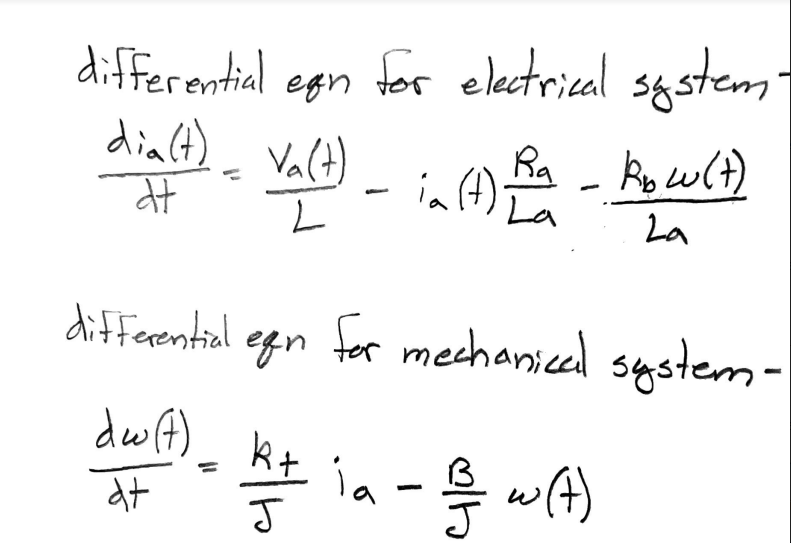 differential eqn for electrical system-
dia(t)/dt = Va(t)/L - ia(t) Ra/La - kb w(t)/La
differential eqn for mechanical system-
dw(t)/dt = kt/J ia - B/J w(t)